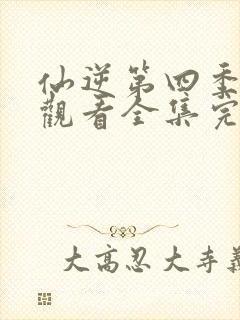 仙逆第四季
觀看全集完
大高忍大寺